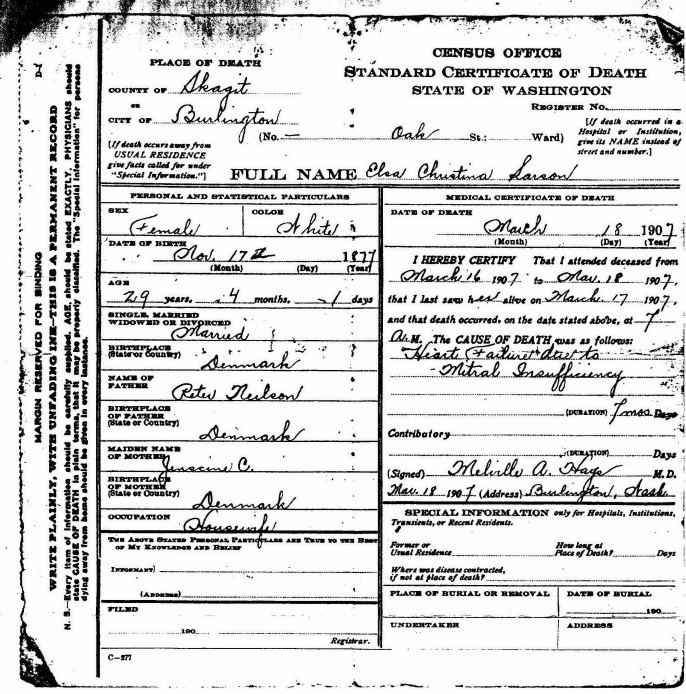 MARGIN RESERVED FOR BINDING
WRITE PLAINLY, WITH UNFADING INK—THIS IS A PERMANENT RECORD
N. B.—Every item of information should be carefully supplied. AGE should be stated EXACTLY, PHYSICIANS should
state CAUSE OF DEATH in plain terms, that it may be properly classified. The "Special Information" for persons
dying away from home should be given in every instance.
PLACE OF DEATH
COUNTY OF Skagit
OR
CITY OF Burlington
CENSUS OFFICE
STANDARD CERTIFICATE OF DEATH
STATE OF WASHINGTON
REGISTER No.
(No. — Oak St.; Ward)
[If death occurs away from
USUAL RESIDENCE
give facts called for under
"Special Information."]
[If death occurred in a
Hospital or Institution,
give its NAME instead of
street and number.]
FULL NAME Elsa Christina Larson
PERSONAL AND STATISTICAL PARTICULARS
SEX
Female
COLOR
White
DATE OF BIRTH
Nov. 17 1877
(Month) (Day) (Year)
AGE
29 years, 4 months, 1 days
SINGLE, MARRIED
WIDOWED OR DIVORCED
Married
BIRTHPLACE
(State or Country)
Denmark
NAME OF
FATHER
Peter Neilson
BIRTHPLACE
OF FATHER
(State or Country)
Denmark
MAIDEN NAME
OF MOTHER
C.
BIRTHPLACE
OF MOTHER
(State or Country)
Denmark
OCCUPATION
Housewife
THE ABOVE STATED PERSONAL PARTICULARS ARE TRUE TO THE BEST
OF MY KNOWLEDGE AND BELIEF
INFORMANT)
(ADDRESS)
FILED
190
Registrar.
C—277
MEDICAL CERTIFICATE OF DEATH
DATE OF DEATH
March 18 1907
(Month) (Day) (Year)
I HEREBY CERTIFY That I attended deceased from
March 16 1907 to Mar. 18 1907,
that I last saw her alive on March 17 1907,
and that death occurred, on the date stated above, at 7
A.M. The CAUSE OF DEATH was as follows:
Heart Failure due to
Mitral Insufficiency
(DURATION) 7 mos Days
Contributory
(DURATION) Days
(Signed) Melville A. Hays M.D.
Mar. 18 1907 (Address) Burlington, Wash.
SPECIAL INFORMATION only for Hospitals, Institutions,
Transients, or Recent Residents.
Former or
Usual Residence
How long at
Place of Death? Days
Where was disease contracted,
if not at place of death?
PLACE OF BURIAL OR REMOVAL
DATE OF BURIAL
190
UNDERTAKER
ADDRESS